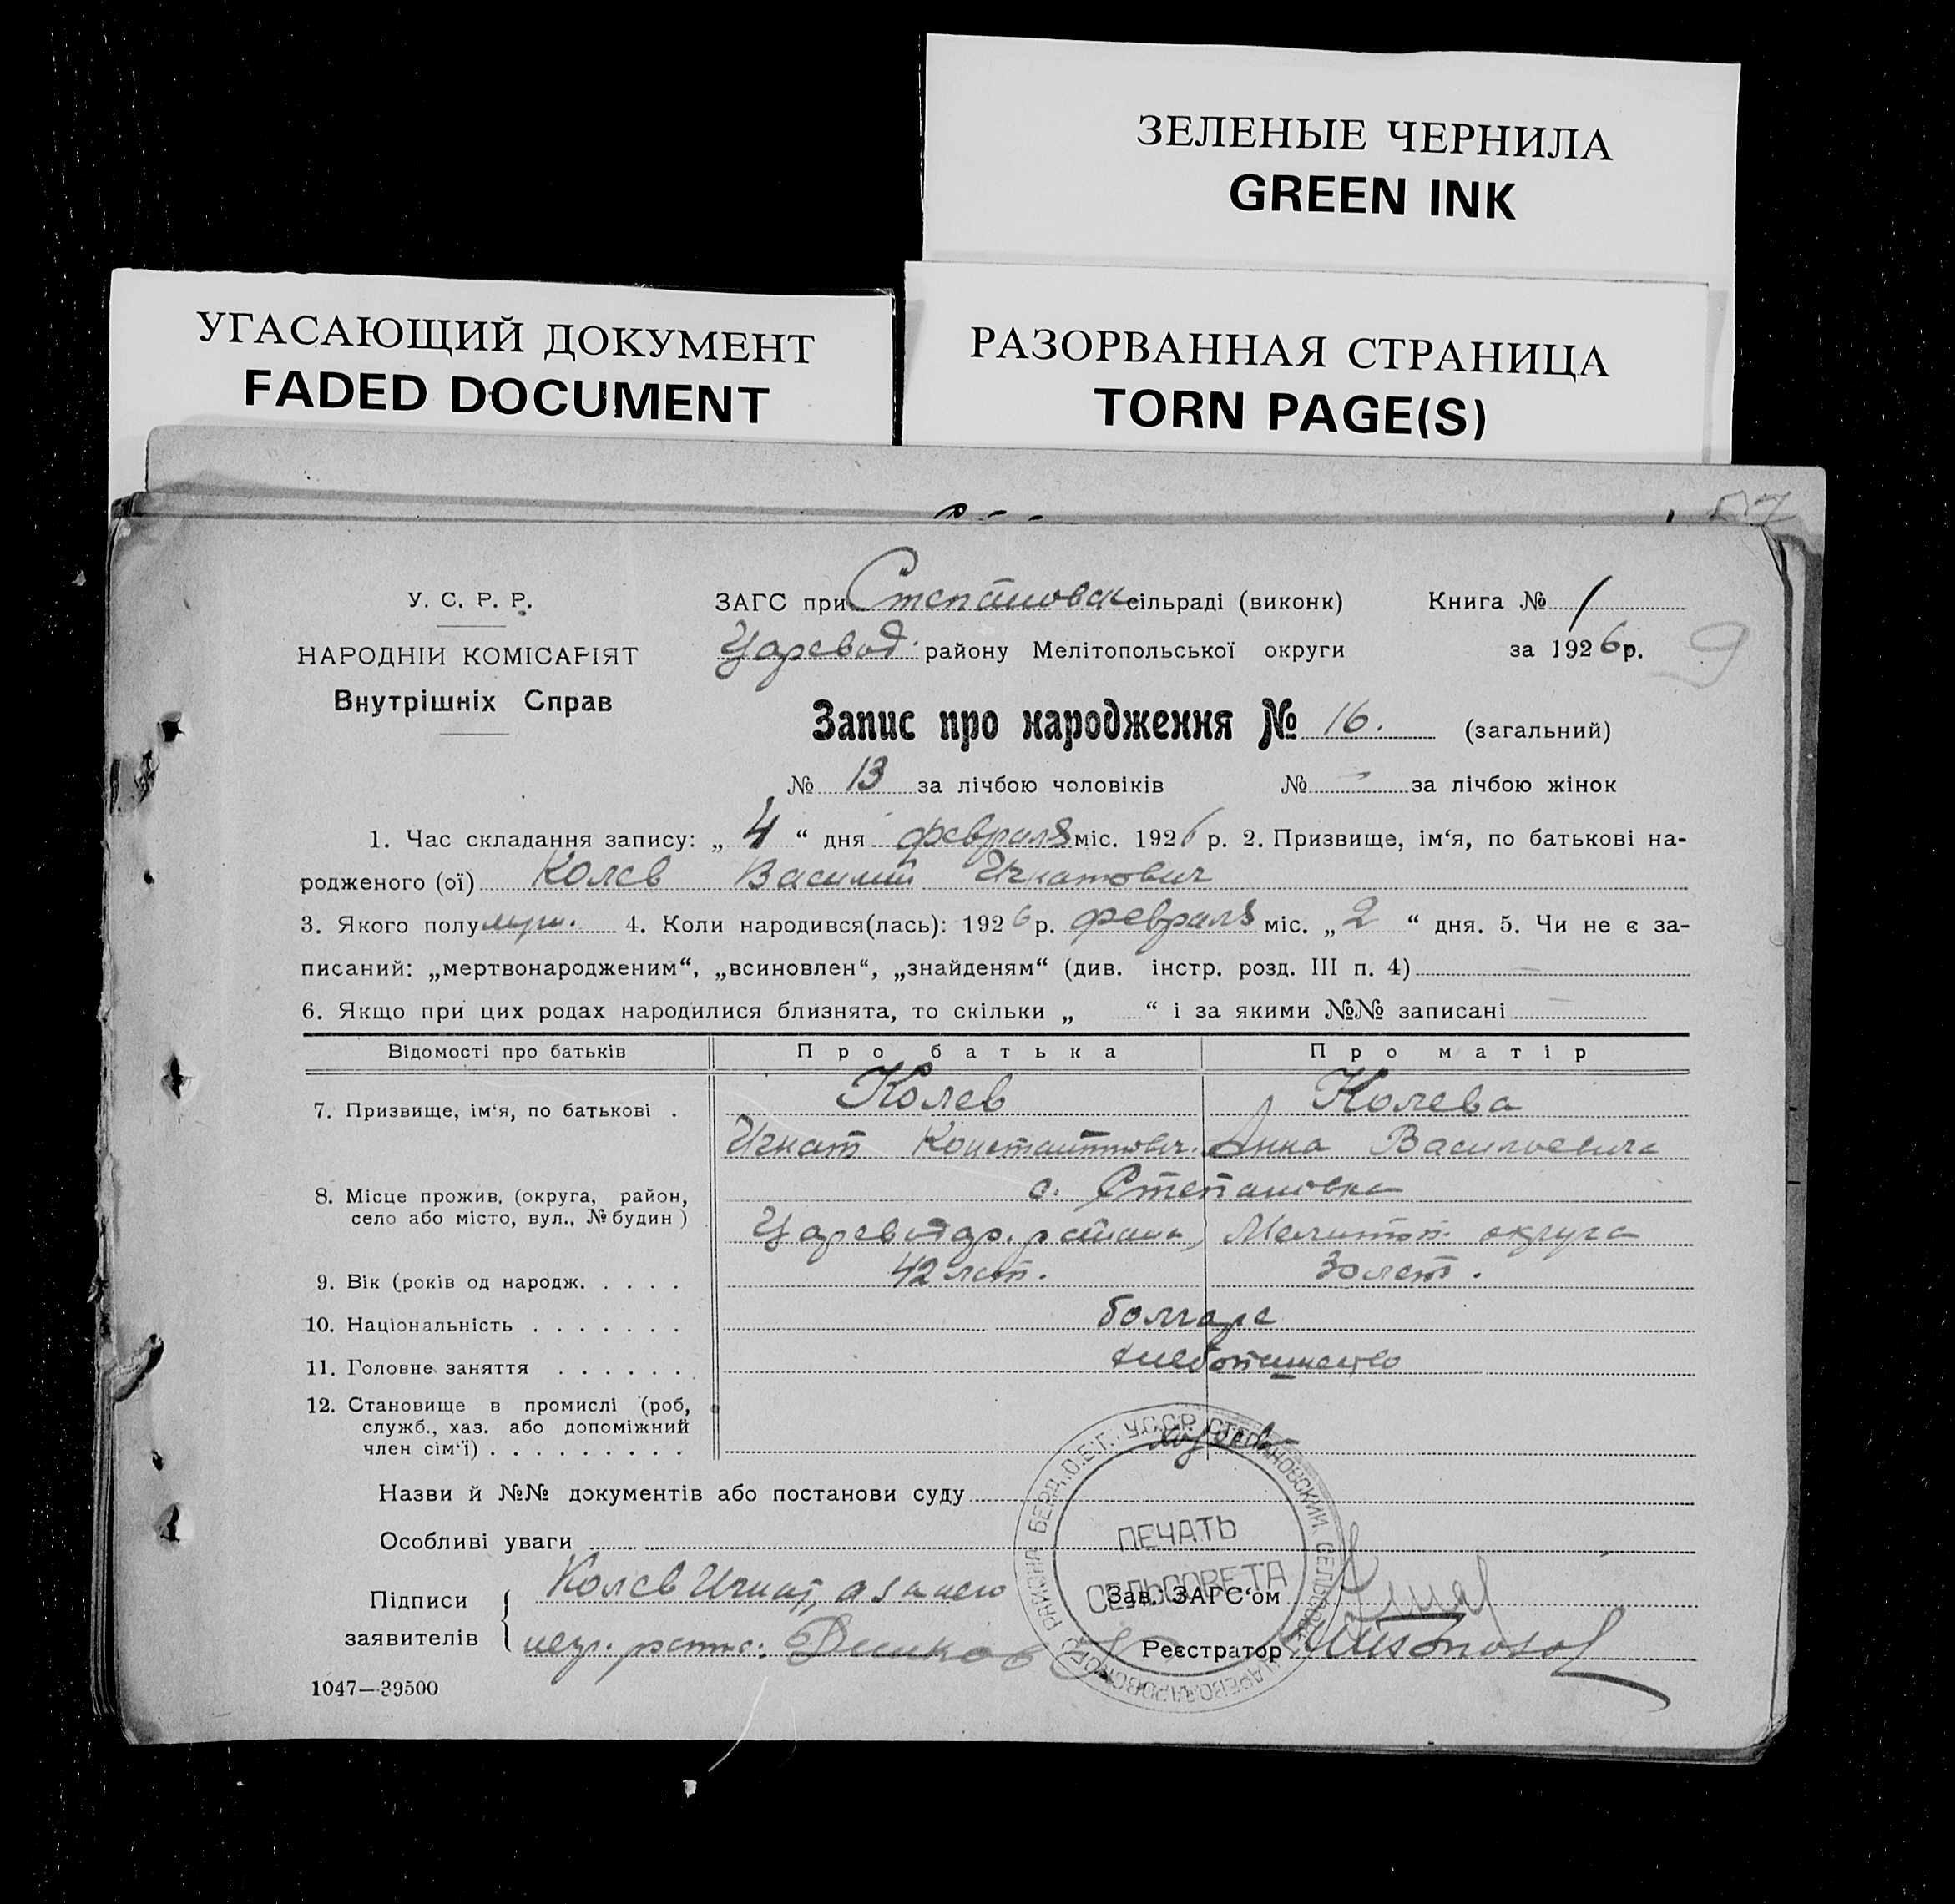 ЗЕЛЕНЫЕ ЧЕРНИЛА
GREEN INK
УГАСАЮЩИЙ ДОКУМЕНТ
FADED DOCUMENT
РАЗОРВАННАЯ СТРАНИЦА
TORN PAGE(S)
57
У. С. Р. Р.
НАРОДНІЙ КОМІСАРІЯТ
Внутрішніх Справ
ЗАГС при Степановск сільраді (виконк) Книга № 1
Царевод. району Мелітопольської округи за 1926 р.
9
Запис про народження № 16. (загальний)
№ 13 за лічбою чоловіків № — за лічбою жінок
1. Час складання запису: „ 4 “ дня февраля міс. 1926 р. 2. Призвище, ім‘я, по батькові на-
родженого (ої) Колев Василий Игнатович
3. Якого полу муж. 4. Коли народився(лась): 1926 р. февраля міс. „ 2 “ дня. 5. Чи не є за-
писаний: „мертвонародженим“, „всиновлен“, „знайденям“ (див. інстр. розд. III п. 4) —
6. Якщо при цих родах народилися близнята, то скільки „ “ і за якими №№ записані —
Відомості про батьків Про батька Про матір
7. Призвище, ім‘я, по батькові . Колев Колева
Игнат Константинович. Анна Васильевна
8. Місце прожив. (округа, район, с. Степановка
село або місто, вул., № будин ) Цареводар. района, Мелитоп. округа
9. Вік (років од народж. . . . . 42 лет. 30 лет.
10. Національність . . . . . . . болгаре
11. Головне заняття . . . . . . хлебопашество
12. Становище в промислі (роб,
служб., хаз. або допоміжний
член сім‘ї) . . . . . . . . .
Назви й №№ документів або постанови суду
Особливі уваги
Підписи Колев Игнат, а за него
заявителів негр. распис: Димков
Зав. ЗАГС‘ом
Реєстратор
У.С.С.Р. СТЕПАНОВСКИЙ СЕЛЬСОВЕТ ЦАРЕВОДАРОВСКОГО РАЙОНА БЕРД. О. Е. Г.
ПЕЧАТЬ
СЕЛЬСОВЕТА
1047—39500